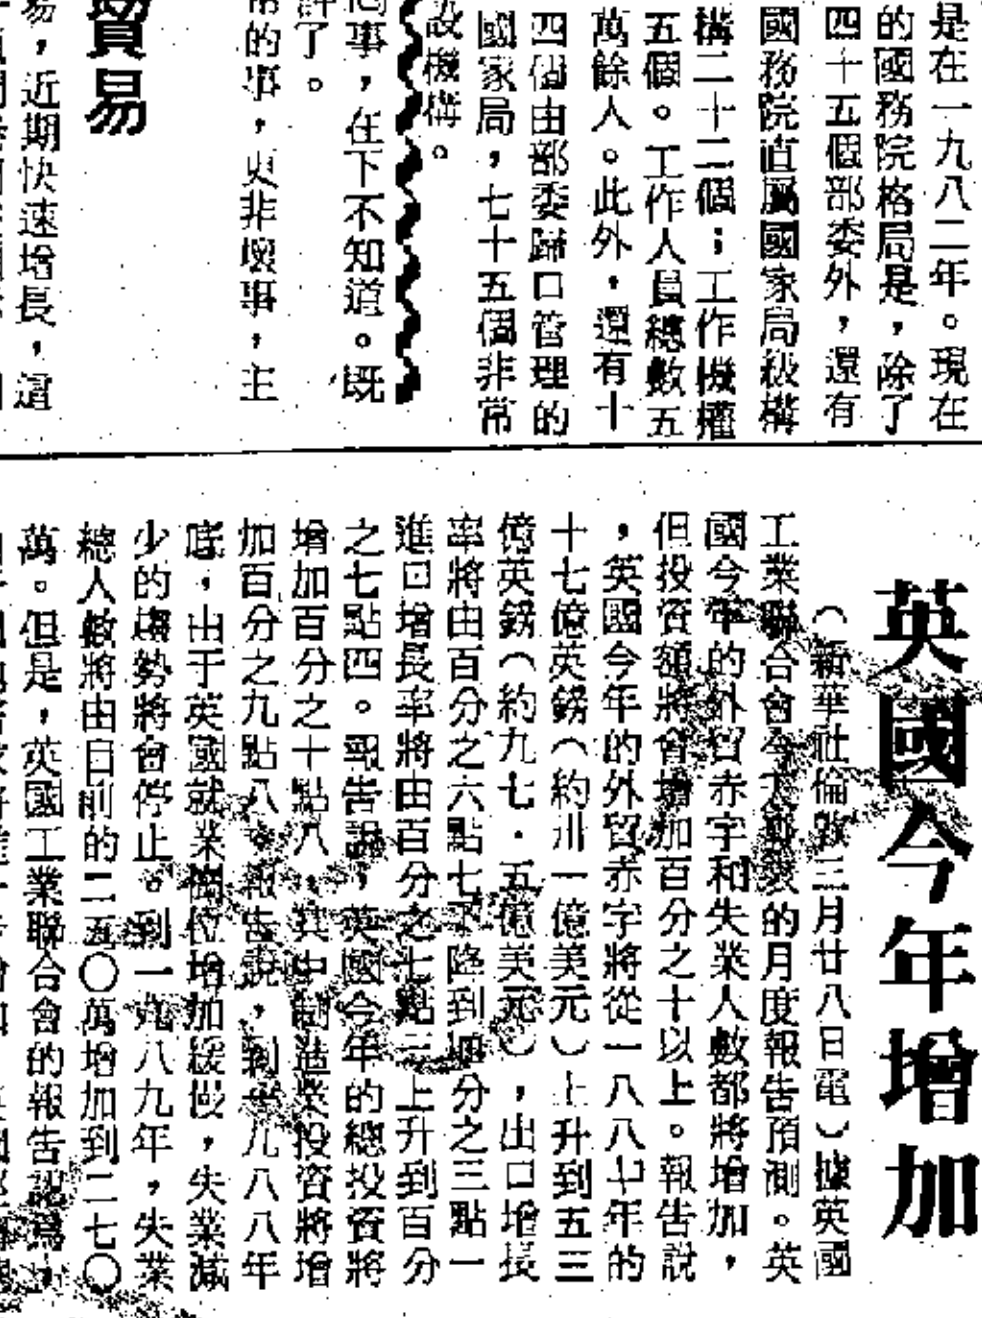 是在一九八二年。現在
的國務院格局是，除了
四十五個部委外，還有
國務院直屬國家局級構
構二十二個；工作機權
五個。工作人員總數五
萬餘人。此外，還有十
四個由部委歸口管理的
國家局，七十五個非常
設機構。
事，在下不知道。既
了。
的事，更非壞事，主
貿易
易，近期快速增長，這
英國今年增加
（新華社倫敦三月廿八日電）據英國
工業聯合會今天發表的月度報告預測。英
國今年的外貿赤字和失業人數都將增加，
但投資額將會增加百分之十以上。報告說
，英國今年的外貿赤字將從一八八七年的
十七億英鎊（約卅一億美元）上升到五三
億英鎊（約九七．五億美元），出口增長
率將由百分之六點七下降到百分之三點一
進口增長率將由百分之七點二上升到百分
之七點四。報告說，英國今年的總投資將
增加百分之十點八，其中制造業投資將增
加百分之九點八。報告說，到一九八八年
底，由于英國就業崗位增加緩慢，失業減
少的趨勢將會停止。到一九八九年，失業
總人數將由目前的二五〇萬增加到二七〇
萬。但是，英國工業聯合會的報告認爲，